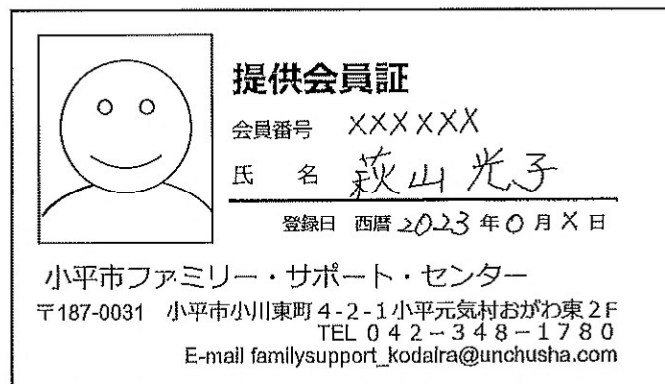 提供会員証
会員番号 XXXXXX
氏 名 萩山 光子
登録日 西暦 2023 年 0 月 X 日
小平市ファミリー・サポート・センター
〒187-0031 小平市小川東町4-2-1小平元気村おがわ東2F
TEL 042-348-1780
E-mail familysupport_kodaira@unchusha.com